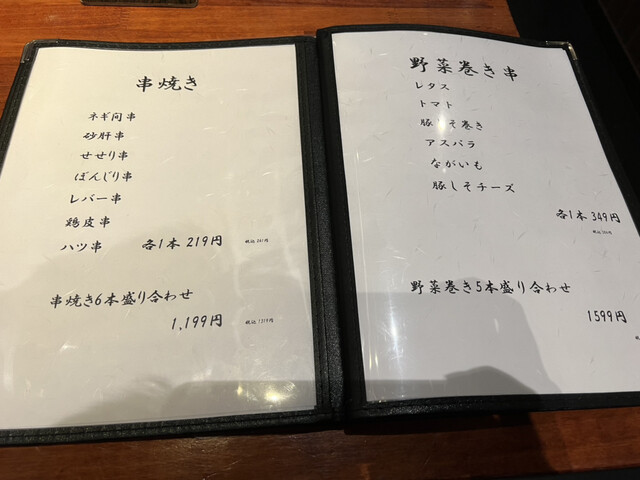 串焼き
ネギ間串
砂肝串
せせり串
ぼんじり串
レバー串
鶏皮串
ハツ串 各1本 219円 税込 241円
串焼き6本盛り合わせ
1,199円 税込 1319円
野菜巻き串
レタス
トマト
豚しそ巻き
アスパラ
ながいも
豚しそチーズ
各1本 349円
野菜巻き5本盛り合わせ
1599円